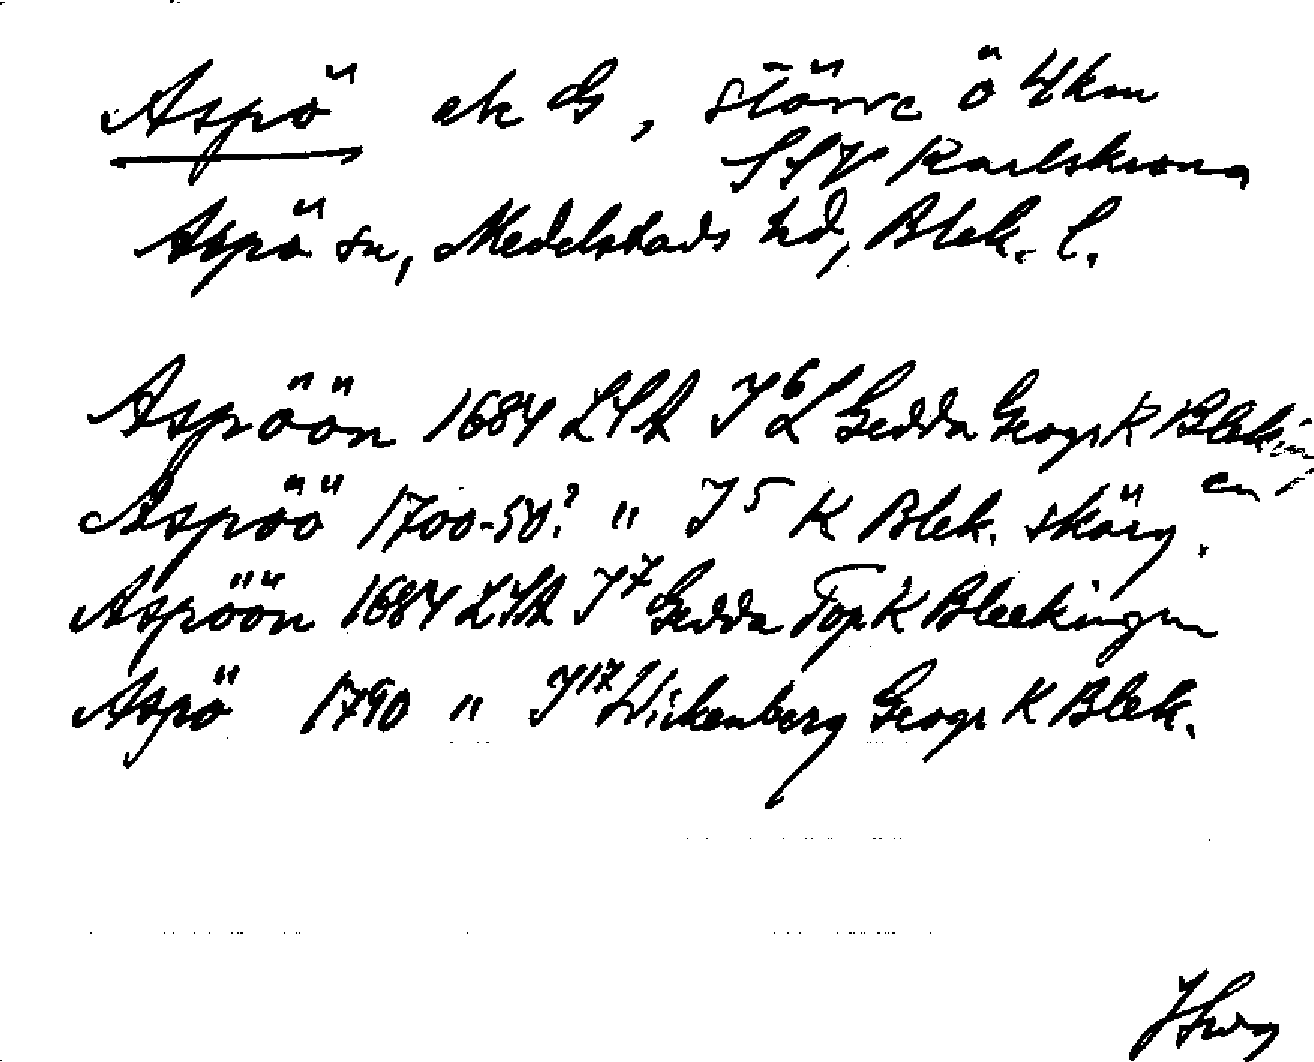 Aspö ek G, större ö 4 km
SSV Karlskrona
Aspö sn, Medelstads hd, Blek. l.
Aspöön 1684 LSA J6 L Gedda Geogr K Bleking
en
Aspöö 1700-50? " J5 K Blek. skärg.
Aspöön 1684 LSA J7 Gedda Top K Bleekingen
Aspö 1790 " J17 Wickenberg Geogr K Blek.